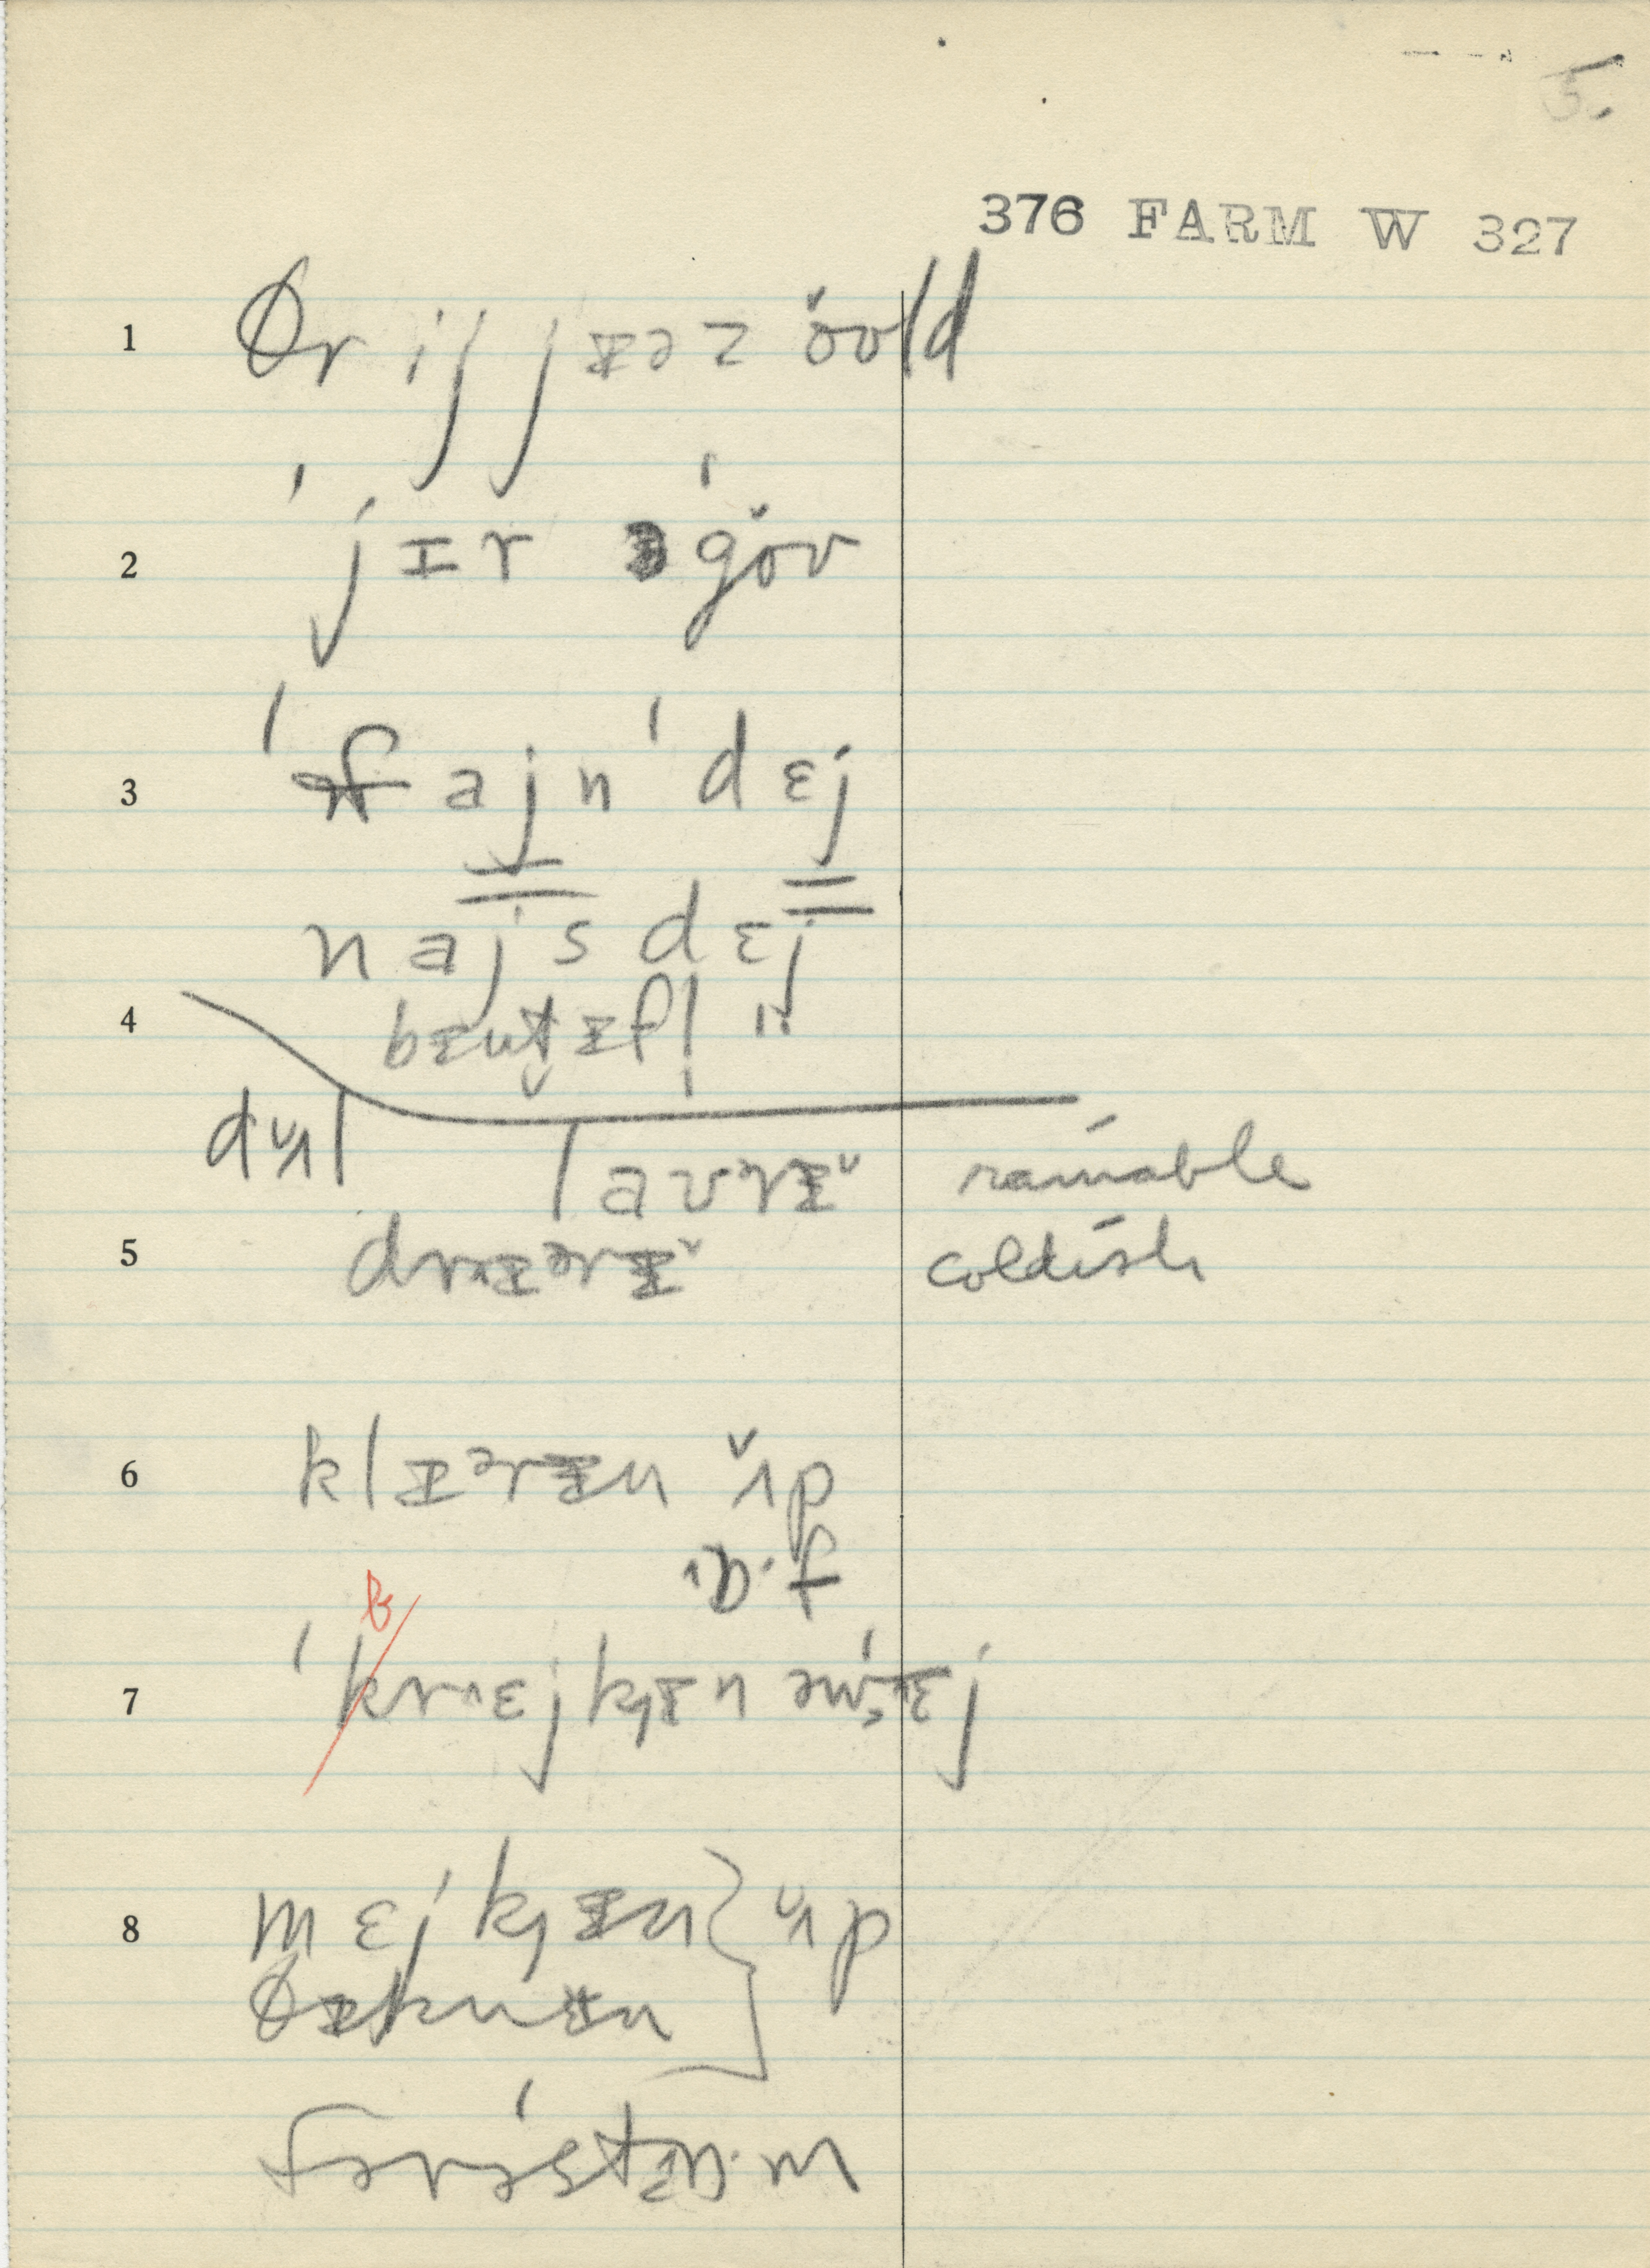 5.
376 FARM W 327
1 θr ij jɪəz ŏʊld
2 ˈjɪr əˈgŏʊ
3 ˈfajn ˈdɛj
najs dɛj
4 bɪutɪfl̩ "
dʌ̆l
laʊrɪ̆ rainable
5 drɪərɪ̆ coldish
6 klɪərɪn ʌ̆p
ɒ·f
7 ˈkrɛjkɪn əwˈɛj
8 mɛjkɪn } ʌ̆p
θɪknɪn
fərˈstɒ·m